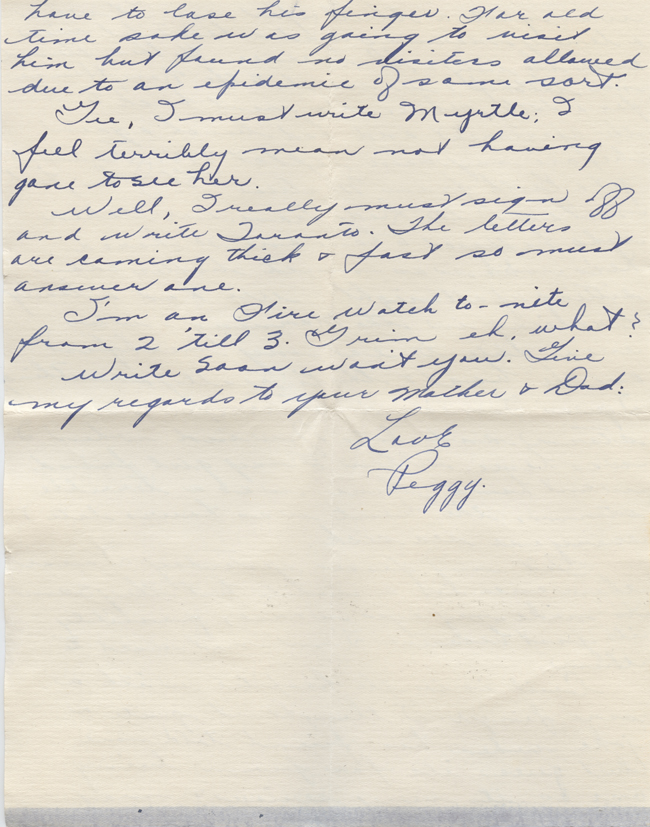 have to lose his finger. For old
time sake was going to visit
him but found no visiters allowed
due to an epidemic of some sort.
Gee, I must write Myrtle; I
feel terribly mean not having
gone to see her.
Well, I really must sign off
and write Toronto. The letters
are coming thick & fast so must
answer one.
I'm on Fire Watch to-nite
from 2 'till 3. Grim eh, what?
Write soon won't you. Give
my regards to your Mother & Dad.
Love
Peggy.